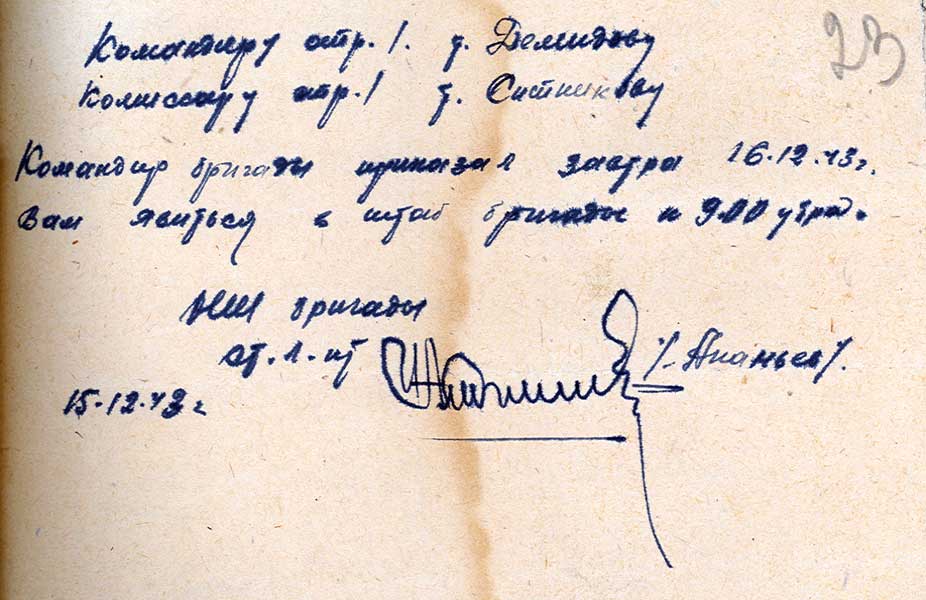 23
Командиру отр. 1. т. Демидову
Комиссару отр. 1 т. Ситникову
Командир бригады приказал завтра 16.12.43 г.
Вам явиться в штаб бригады к 9.00 утра.
НШ бригады
ст. л-нт /-Ананьев/.
15.12.43 г